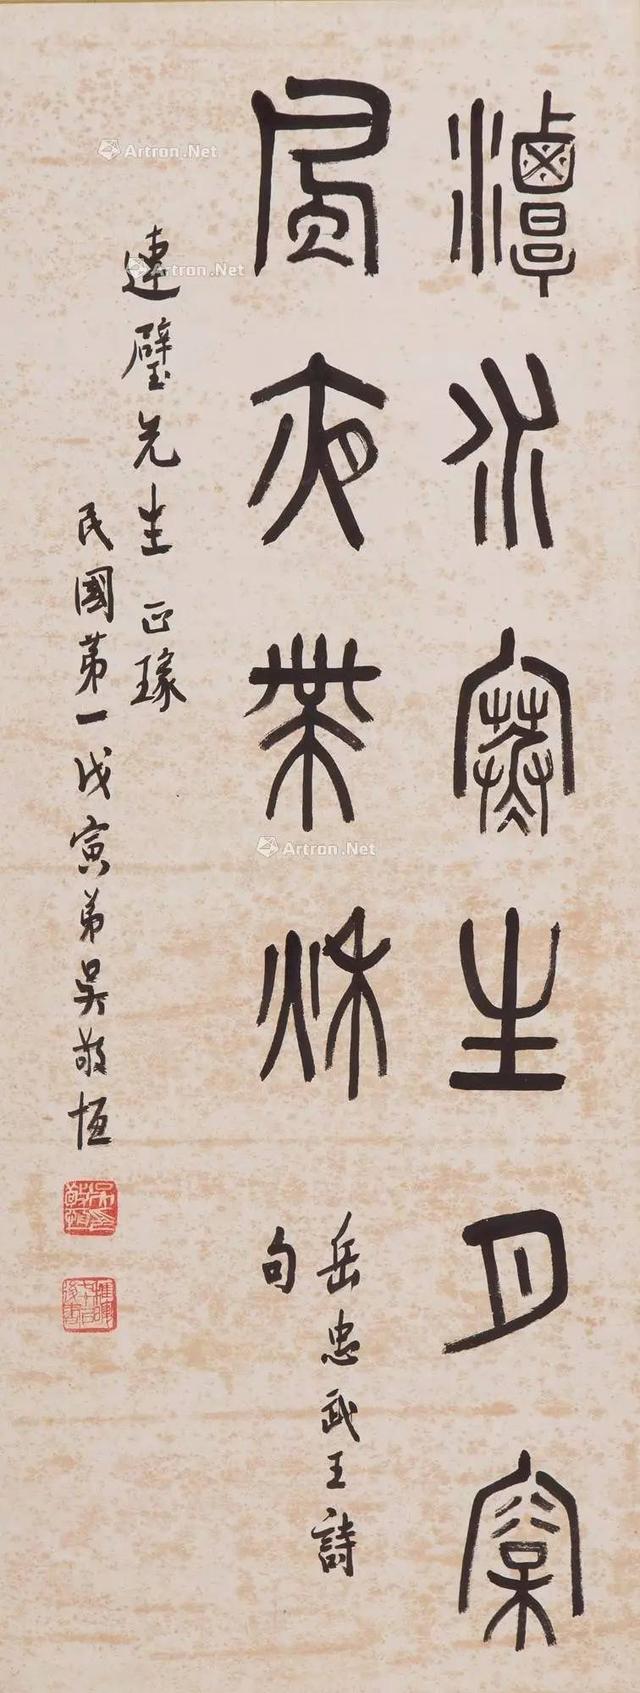 潭水寒生月松
風夜帶秋
岳忠武王詩
句
連璧先生正瑑
民國第一戊寅弟吳敬恒
吳印敬恒
Artron.Net
Artron.Net
Artron.Net